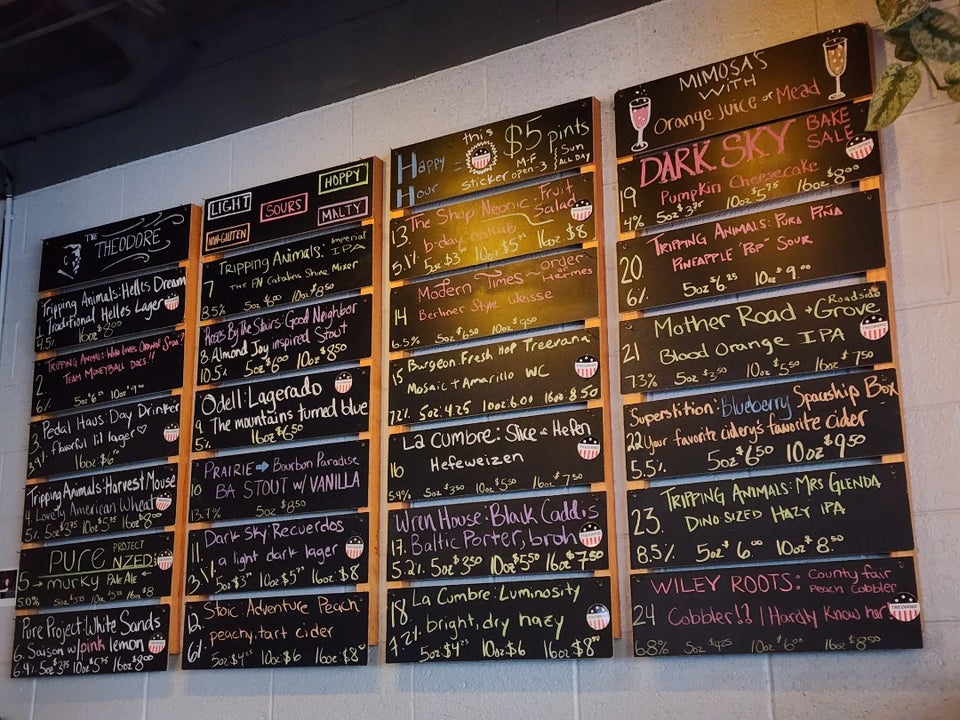 THE
THEODORE
Tripping Animals: Helles Dream
Traditional Helles Lager
1.
4.5% 16oz $8.00
TRIPPING ANIMALS: WHO LOVES ORANGE SODA?
2 TEAM MONEYBALL DOES!!
6% 5oz 10oz $9.00
Pedal Haus: Day Drinker
3. flavorful lil lager
16oz $6
Tripping Animals: Harvest Mouse
4. Lovely American Wheat
5% 5oz $3.75 10oz $5.75 16oz $8.00
PURE PROJECT
NZED!
5 → murky Pale Ale ←
5.0% 5oz 10oz 16oz $8
Pure Project: White Sands
6. Saison w/ pink lemon
6.4% 5oz $3.75 10oz $5.75 16oz $8.00
LIGHT SOURS HOPPY
NON-GLUTEN MALTY
TRIPPING ANIMALS: Imperial IPA
7 The FN Catalina Shrine Mixer
8.5% 5oz $6.00 10oz $8.50
Roses By the Stairs: Good Neighbor
8 Almond Joy inspired Stout
10.5% 5oz $6.00 10oz $8.50
Odell: Lagerado
9 The mountains turned blue
5% 16oz $6.50
PRAIRIE → Bourbon Paradise
10 BA STOUT w/ VANILLA
13.4% 5oz $8.50
Dark Sky: Recuerdos
11 a light dark lager
3.1% 5oz $3 10oz $5 16oz $8
Stoic: Adventure Peach
12 peachy, tart cider
6% 5oz $4 10oz $6 16oz $8
Happy Hour = this sticker $5 pints
M-F open-3 Sun ALL DAY
The Shop: Neonic Fruit Salad
13. b-day
5.1% 5oz $3 10oz $5 16oz $8
Modern Times ~ order of Hermes
14 Berliner Style Weisse
6.5% 5oz $6.50 10oz $9.50
Burgeon: Fresh Hop Treevana
15 Mosaic + Amarillo WC
7.2% 5oz: 4.25 10oz: 6.00 16oz: 8.50
La Cumbre: Slice o Hefen
16 Hefeweizen
5.4% 5oz $3.50 10oz $5.00 16oz $7.50
Wren House: Black Caddis
17. Baltic Porter, broh
5.2% 5oz $3.50 10oz $5.50 16oz $7.50
La Cumbre: Luminosity
18 bright, dry hazy
7.2% 5oz $4 10oz $6 16oz $8
MIMOSA'S
WITH
Orange Juice or Mead
DARK SKY BAKE SALE
19 Pumpkin Cheesecake
4% 5oz $3.75 10oz $5.75 16oz $8.00
TRIPPING ANIMALS: PURA PIÑA
20. PINEAPPLE "POP" SOUR
6% 5oz $6.25 10oz $9.00
Mother Road + Roadside Grove
21 Blood Orange IPA
7.3% 5oz $3.50 10oz $5.50 16oz $7.50
Superstition: Blueberry Spaceship Box
22 Your favorite cidery's favorite cider
5.5% 5oz $6.50 10oz $9.50
TRIPPING ANIMALS: MRS GLENDA
23. DINO-SIZED HAZY IPA
8.5% 5oz $6.00 10oz $8.50
WILEY ROOTS: County fair Peach Cobbler
24 Cobbler!? I Hardly Know her
6.8% 5oz $4.25 10oz $6.00 16oz $8.50